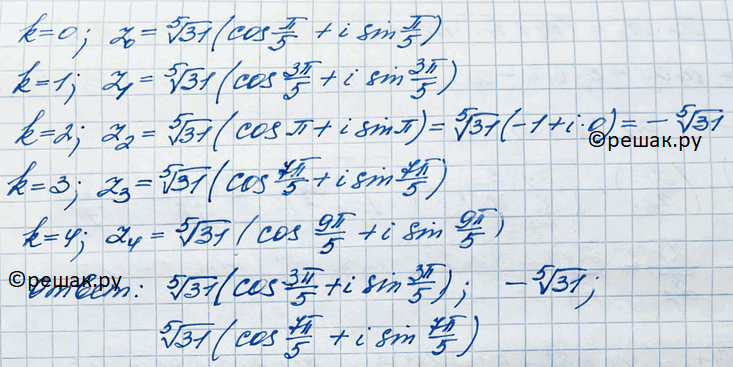 k=0; z₀ = ⁵√31 (cos π/5 + i sin π/5)
k=1; z₁ = ⁵√31 (cos 3π/5 + i sin 3π/5)
k=2; z₂ = ⁵√31 (cos π + i sin π) = ⁵√31 (-1 + i·0) = -⁵√31
©решак.ру
k=3; z₃ = ⁵√31 (cos 7π/5 + i sin 7π/5)
k=4; z₄ = ⁵√31 (cos 9π/5 + i sin 9π/5)
©решак.ру
ответ: ⁵√31 (cos 3π/5 + i sin 3π/5); -⁵√31;
⁵√31 (cos 7π/5 + i sin 7π/5)